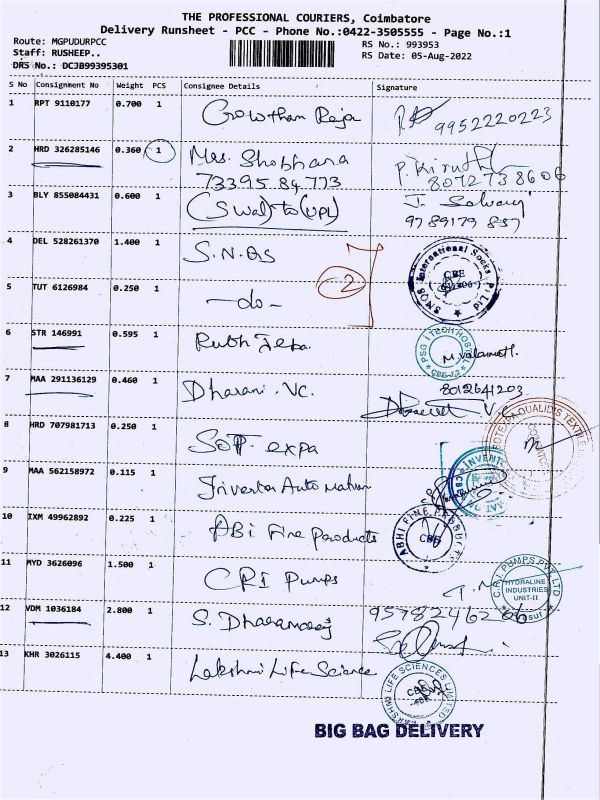 THE PROFESSIONAL COURIERS, Coimbatore
Delivery Runsheet - PCC - Phone No.:0422-3505555 - Page No.:1
Route: MGPUDURPCC
RS No.: 993953
Staff: RUSHEEP..
RS Date: 05-Aug-2022
DRS No.: DCJB99395301
S No Consignment No Weight PCS Consignee Details Signature
1 RPT 9110177 0.700 1 Gowtham Raja 9952220223
2 HRD 326285146 0.360 1 Mrs. Shobhana
73395 84 773 8072738606
3 BLY 855084431 0.600 1 (Swal) to (UPL)
4 DEL 528261370 1.400 1 S.N.QS
2
SNQS International Socks P. Ltd
CBE
5 TUT 6126984 0.250 1 -do-
6 STR 146991 0.595 1
PSG iTECH HOSTEL
7 MAA 291136129 0.460 1 Dharani. VC. 8012641203
8 HRD 707981713 0.250 1
9 MAA 562158972 0.115 1
10 IXM 49962892 0.225 1 ABi Fine Products
ABHI FINE PRODUCTS
CBE
11 MYD 3626096 1.500 1 CRI Pumps
C.R.I. PUMPS PVT LTD
HYDRALINE
INDUSTRIES
UNIT-II
12 VDM 1036184 2.800 1 S. Dharamaraj
13 KHR 3026115 4.400 1 Lakshmi Life Science
LAKSHMI LIFE SCIENCES LIMITED
BIG BAG DELIVERY